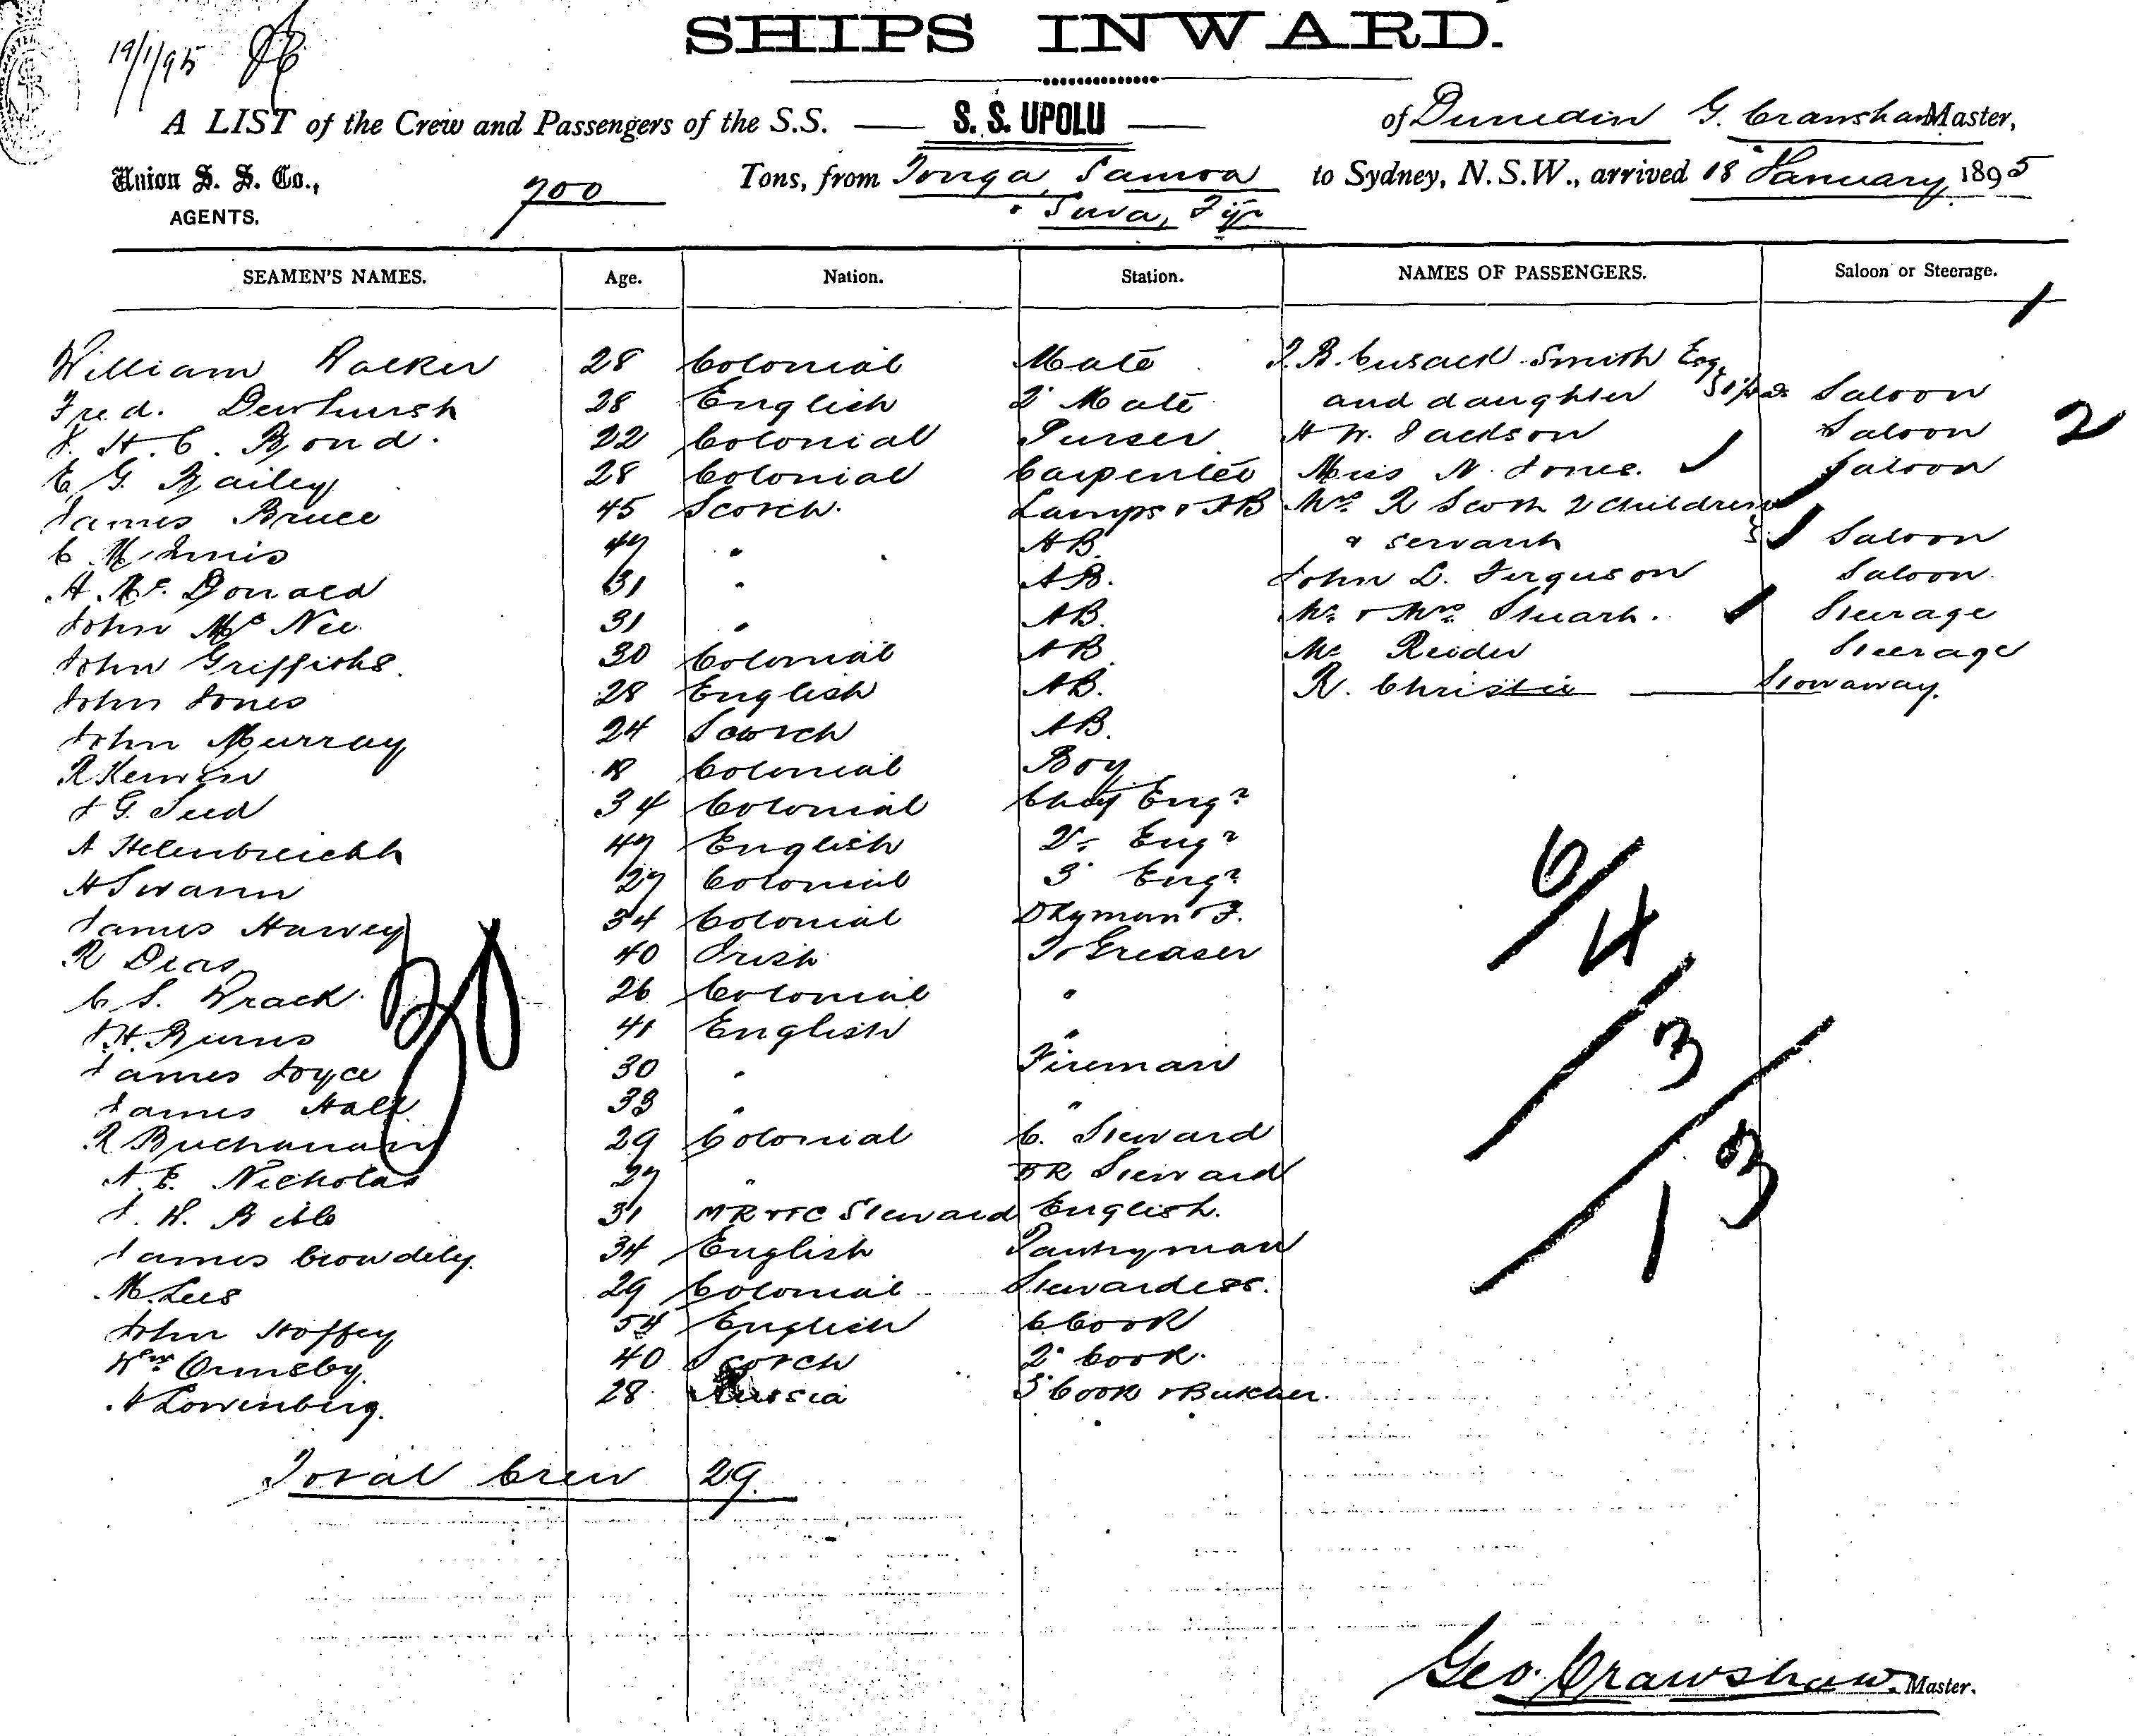 19/1/95
SHIPS INWARD.
A LIST of the Crew and Passengers of the S.S. — S. S. UPOLU — of Dunedin G. Crawshaw Master,
Union S. S. Co., AGENTS. 700 Tons, from Tonga, Samoa & Suva, Fiji to Sydney, N.S.W., arrived 18 January 1895
SEAMEN'S NAMES. Age. Nation. Station. NAMES OF PASSENGERS. Saloon or Steerage.
1
William Walker 28 Colonial Mate T. B. Cusack Smith Esq.
Fred. Dewhurst 28 English 2 Mate and daughter Saloon
J. H. C. Bond. 22 Colonial Purser H W. Jackson Saloon 2
E. G. Bailey 28 Colonial Carpenter Miss N. Jones. Saloon
James Bruce 45 Scotch. Lamps & AB Mrs R Scott 2 children
C McInnis 47 " AB. & servant Saloon
A. Mc Donald 31 " AB. John L. Ferguson Saloon.
John Mc Nee 31 " AB. Mr & Mrs Stuart. Steerage
John Griffiths. 30 Colonial AB. Mr Reider Steerage
John Jones 28 English AB. R. Christie Stowaway.
John Murray 24 Scotch AB.
R Kerwin 18 Colonial Boy
J G. Seed 34 Colonial Chief Engr
A 47 English 2 Engr
H Swann 27 Colonial 3 Engr
James Harvey 34 Colonial Dkyman & F.
R Dias 40 Irish Tr Greaser
C S. Wrack 26 Colonial "
J. H. Burns 41 English "
James Joyce 30 " Fireman
James Hall 33 " "
R Buchanan 29 Colonial C. Steward
A. E. Nicholas 27 " BR Steward
J. W. Bible 31 MR & FC Steward English.
James Crowdely. 34 English Pantryman
M. Lees 29 Colonial Stewardess.
John Hoffey 54 English C Cook
Wm Ormsby. 40 Scotch 2 Cook.
A Lowenberg. 28 Russia 3 Cook & Butcher.
Total Crew 29.
6/4/3/13
Geo. Crawshaw. Master.